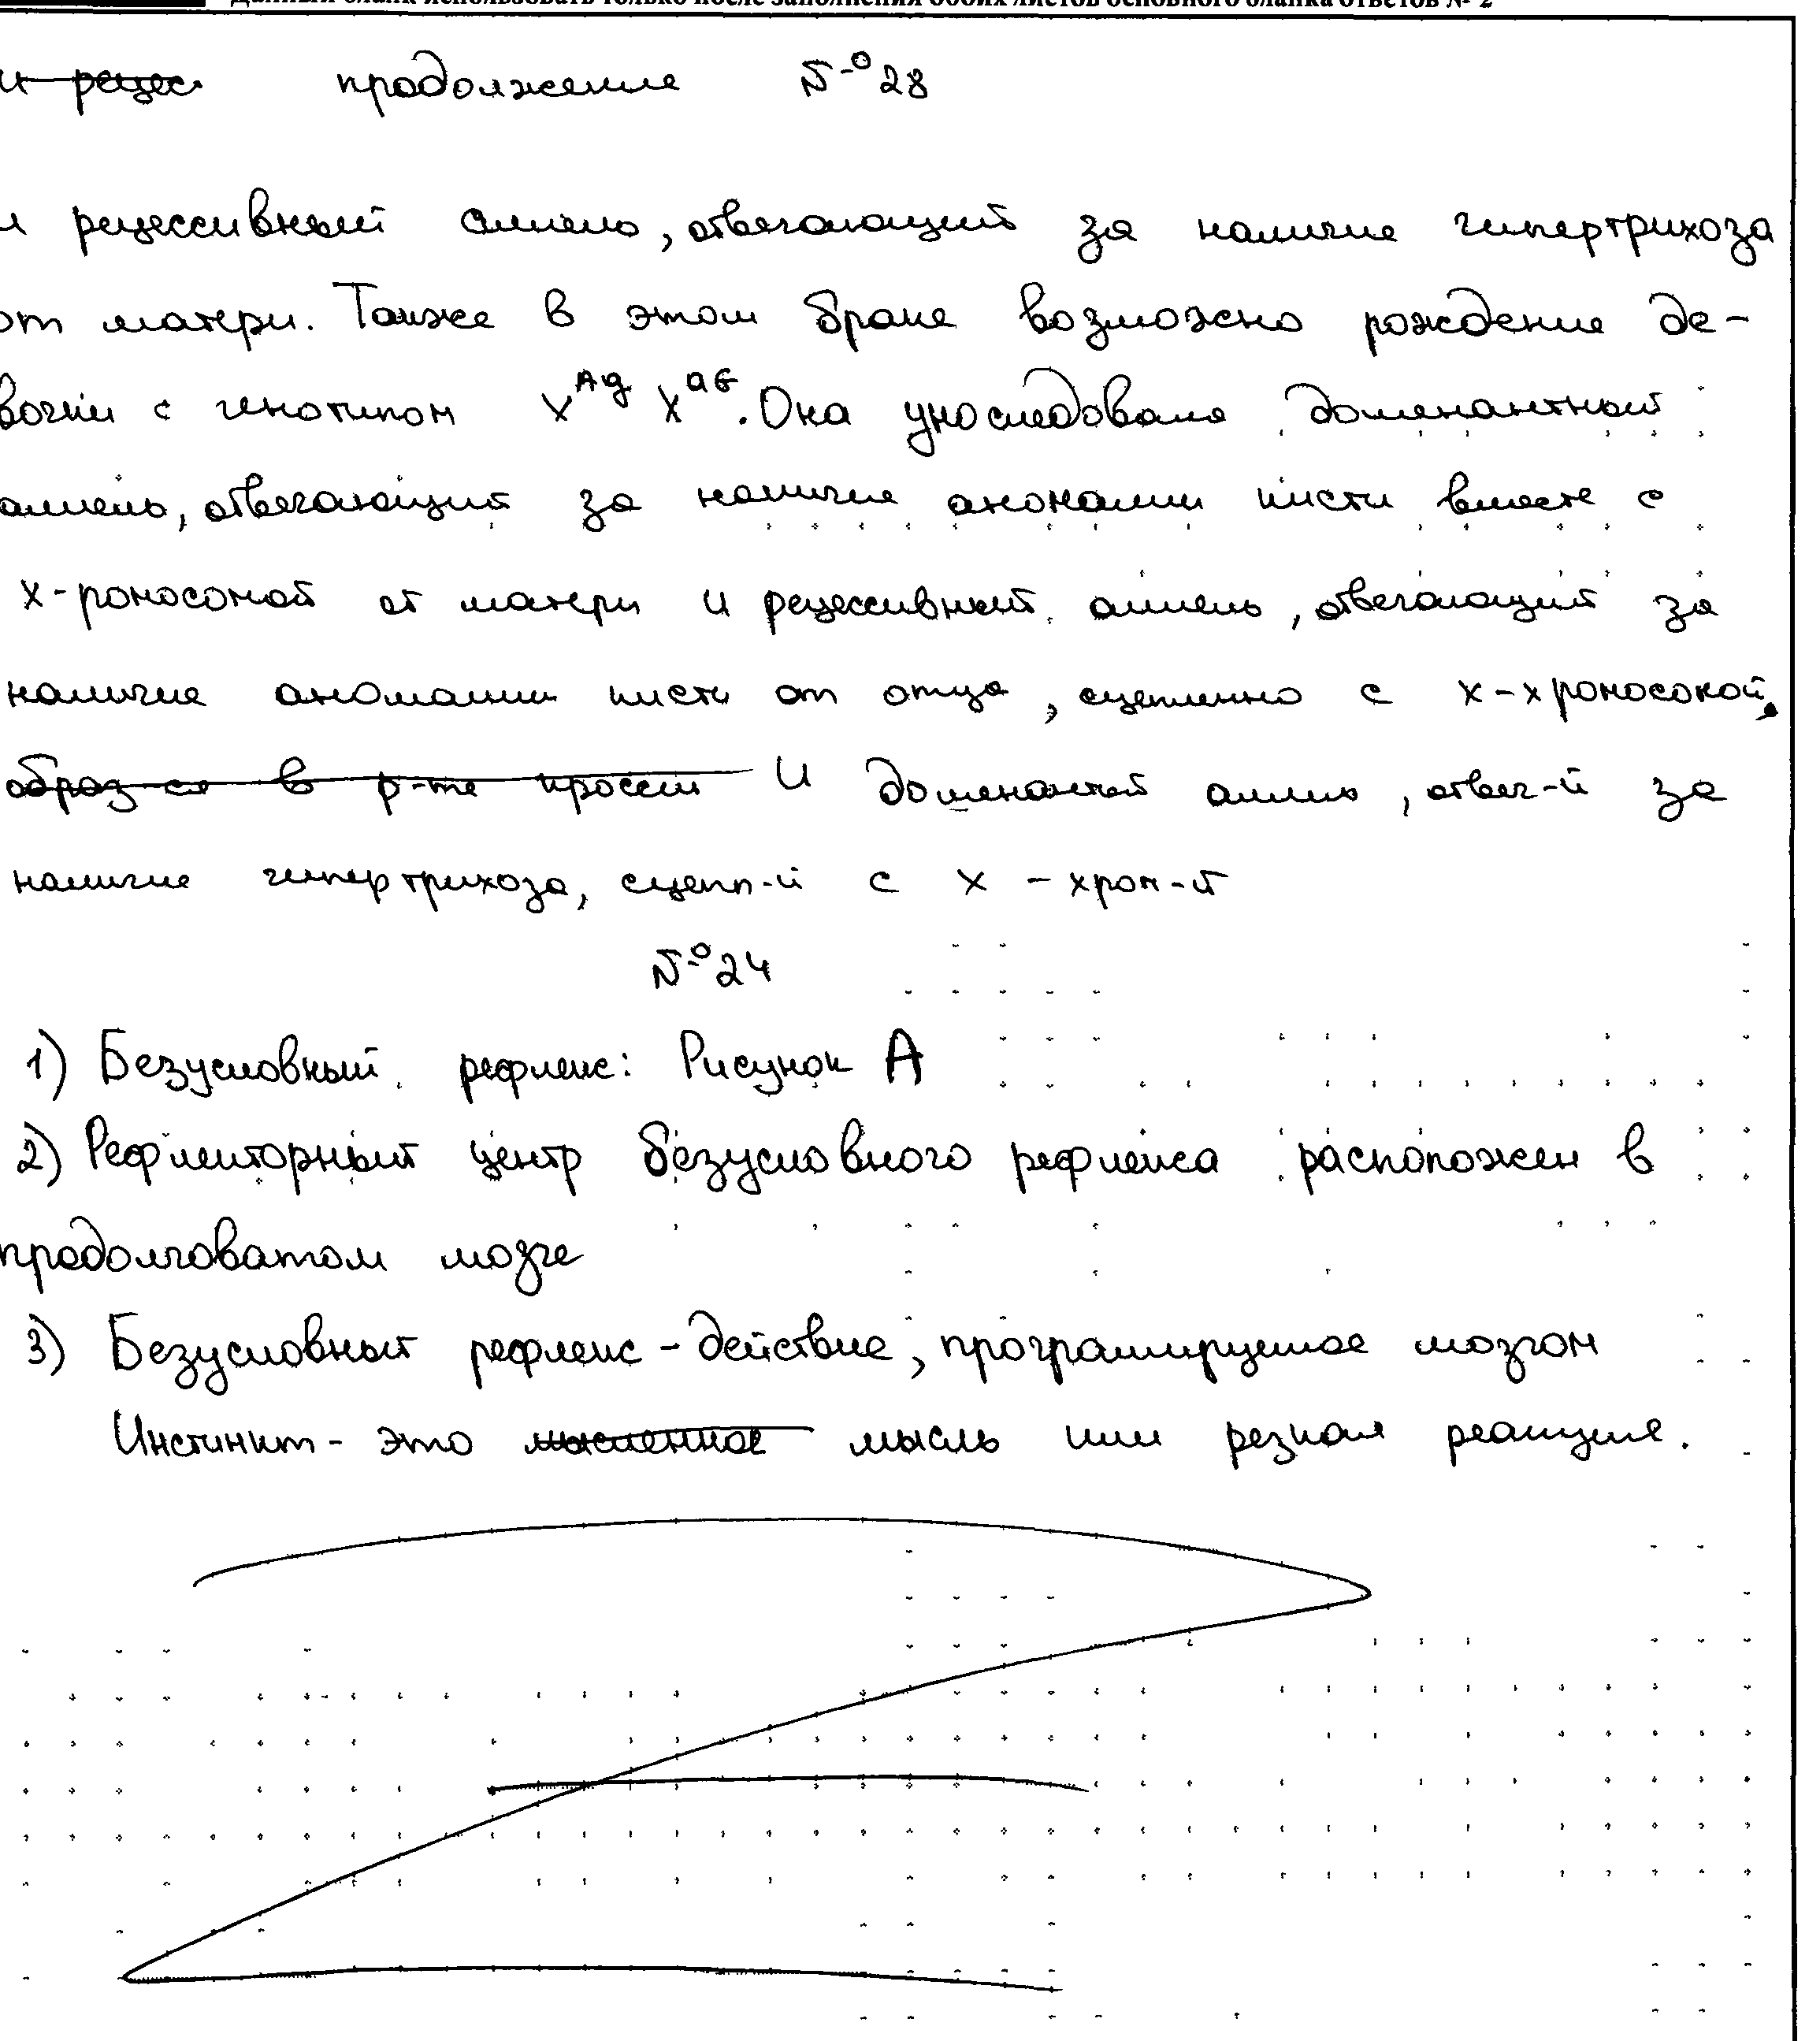 Данный бланк использовать только после заполнения обоих листов основного бланка ответов № 2
и рецес. продолжение №28
и рецессивный аллель, отвечающий за наличие гипертрихоза
от матери. Также в этом браке возможно рождение де-
вочки с генотипом X^Ag X^aG. Она унаследовала доменантный
аллель, отвечающий за наличие анонамии кисти вместе с
х-роносомой от матери и рецессивный аллель, отвечающий за
наличие аномалии кисти от отца, сцепленно с х-хромосомой,
образ-ся в р-те кроссн И доменантый аллель, отвеч-й за
наличие гипертрихоза, сцепл-й с х - хром-й
№24
1) Безусловный рефлекс: Рисунок А
2) Рефлекторный центр безусловного рефлекса расположен в
продолговатом мозге
3) Безусловный рефлекс - действие, программируемое мозгом
Инстинкт - это мысленное мысль или резкая реакция.